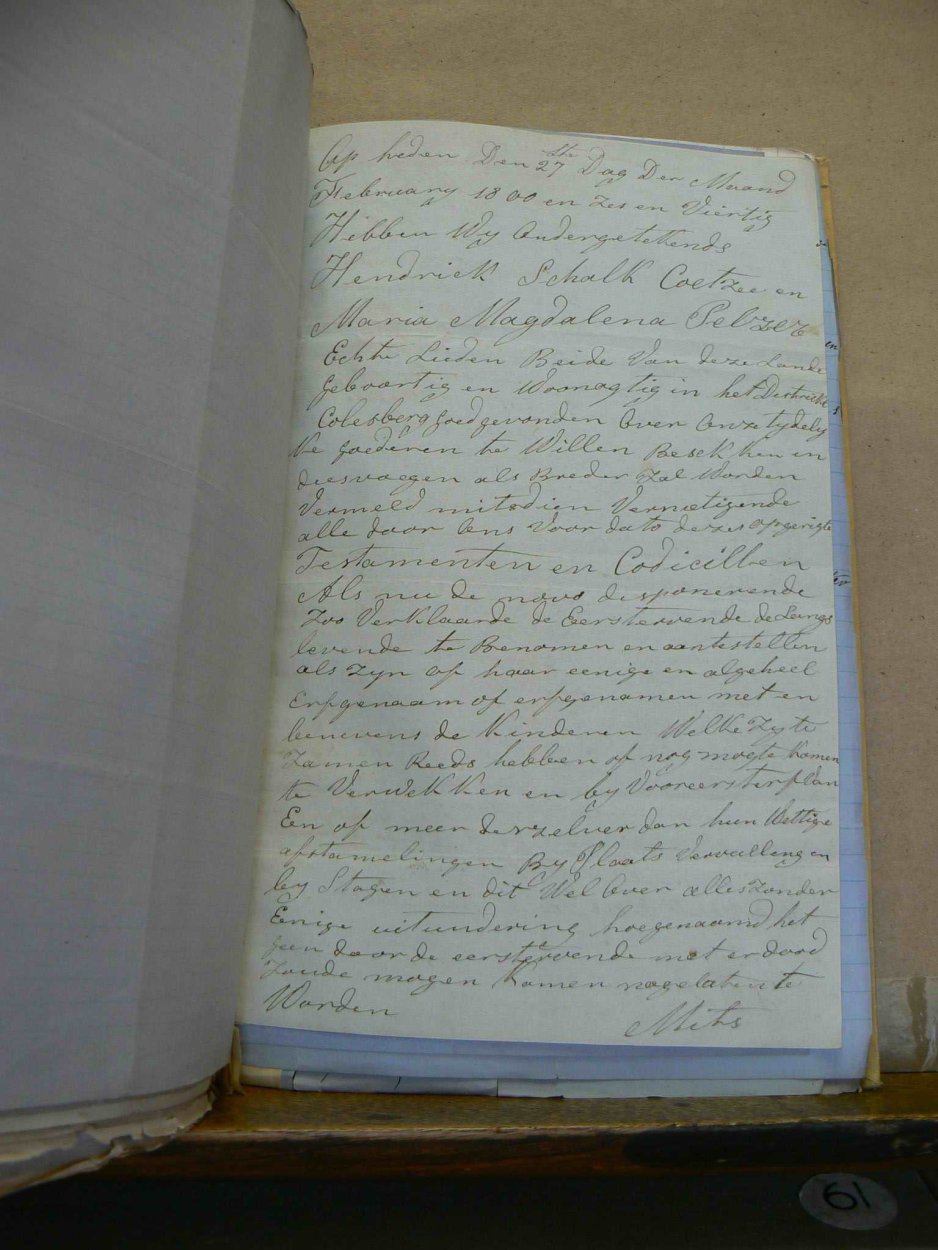 Op heden Den 27ste Dag Der Maand
February 1800 en zes en Viertig
Hibben Wy Ondergetekends
Hendrick Schalk Coetzee en
Maria Magdalena Pelzer
Echte Lieden Beide Van deze Lande
geboortig en Woonagtig in het Destrickt
Colesberg goedgevonden Over Onze tydely
ke goederen te Willen Besekken en
diesvoegen als Breder Zal Worden
Vermeld mitsdien Vernietigende
alle door Ons Voor dato dezes opgerigte
Testamenten en Codicillen
Als nu de novo desponerende
Zoo Verklaarde de Eerstervende de Langs
levende te Benomen en aantestellen
als Zyn of haar eenige en algeheel
Erfgenaam of erfgenamen met en
benevens de Kinderen Welke Zy te
Zamen Reeds hebben of nog mogte Komen
te Verwekken en by Vooreersterf Van
Een of meer derzelver dan hun Wettige
afstamelingen By Plaats Vervulling en
by Stagen en dit Wel Over alles Zonder
Eenige uitundering hoegenaamd het
geen door de eerstervende met er dood
Zoude mogen Komen nagelaten te
Worden
Mits
61